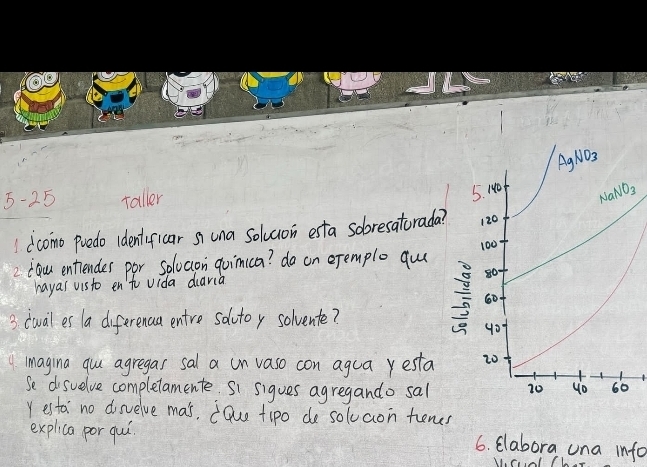 5-25
Taller
1 ¿cómo puedo identificar si una solución esta sobresaturada?
2. ¿que entiendes por solucion quimica? da un ejemplo que
hayas visto en tu vida diaria
3. ¿cuál es la diferencia entre soluto y solvente?
4 imagina que agregas sal a un vaso con agua y esta
se disuelve completamente. Si sigues agregando sal
y esta no disuelve mas. ¿Que tipo de solucion tienes
explica por qué.
5.
Solubilidad
140
120
100
80
60
40
20
20 40 60
AgNO3
NaNO3
6. Elabora una info